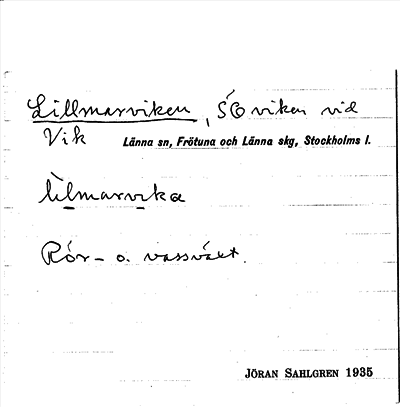 Lillmarviken, SO viken vid
Vik Länna sn, Frötuna och Länna skg, Stockholms l.
lilmarvika
Rör- o. vassväxt.
JÖRAN SAHLGREN 1935